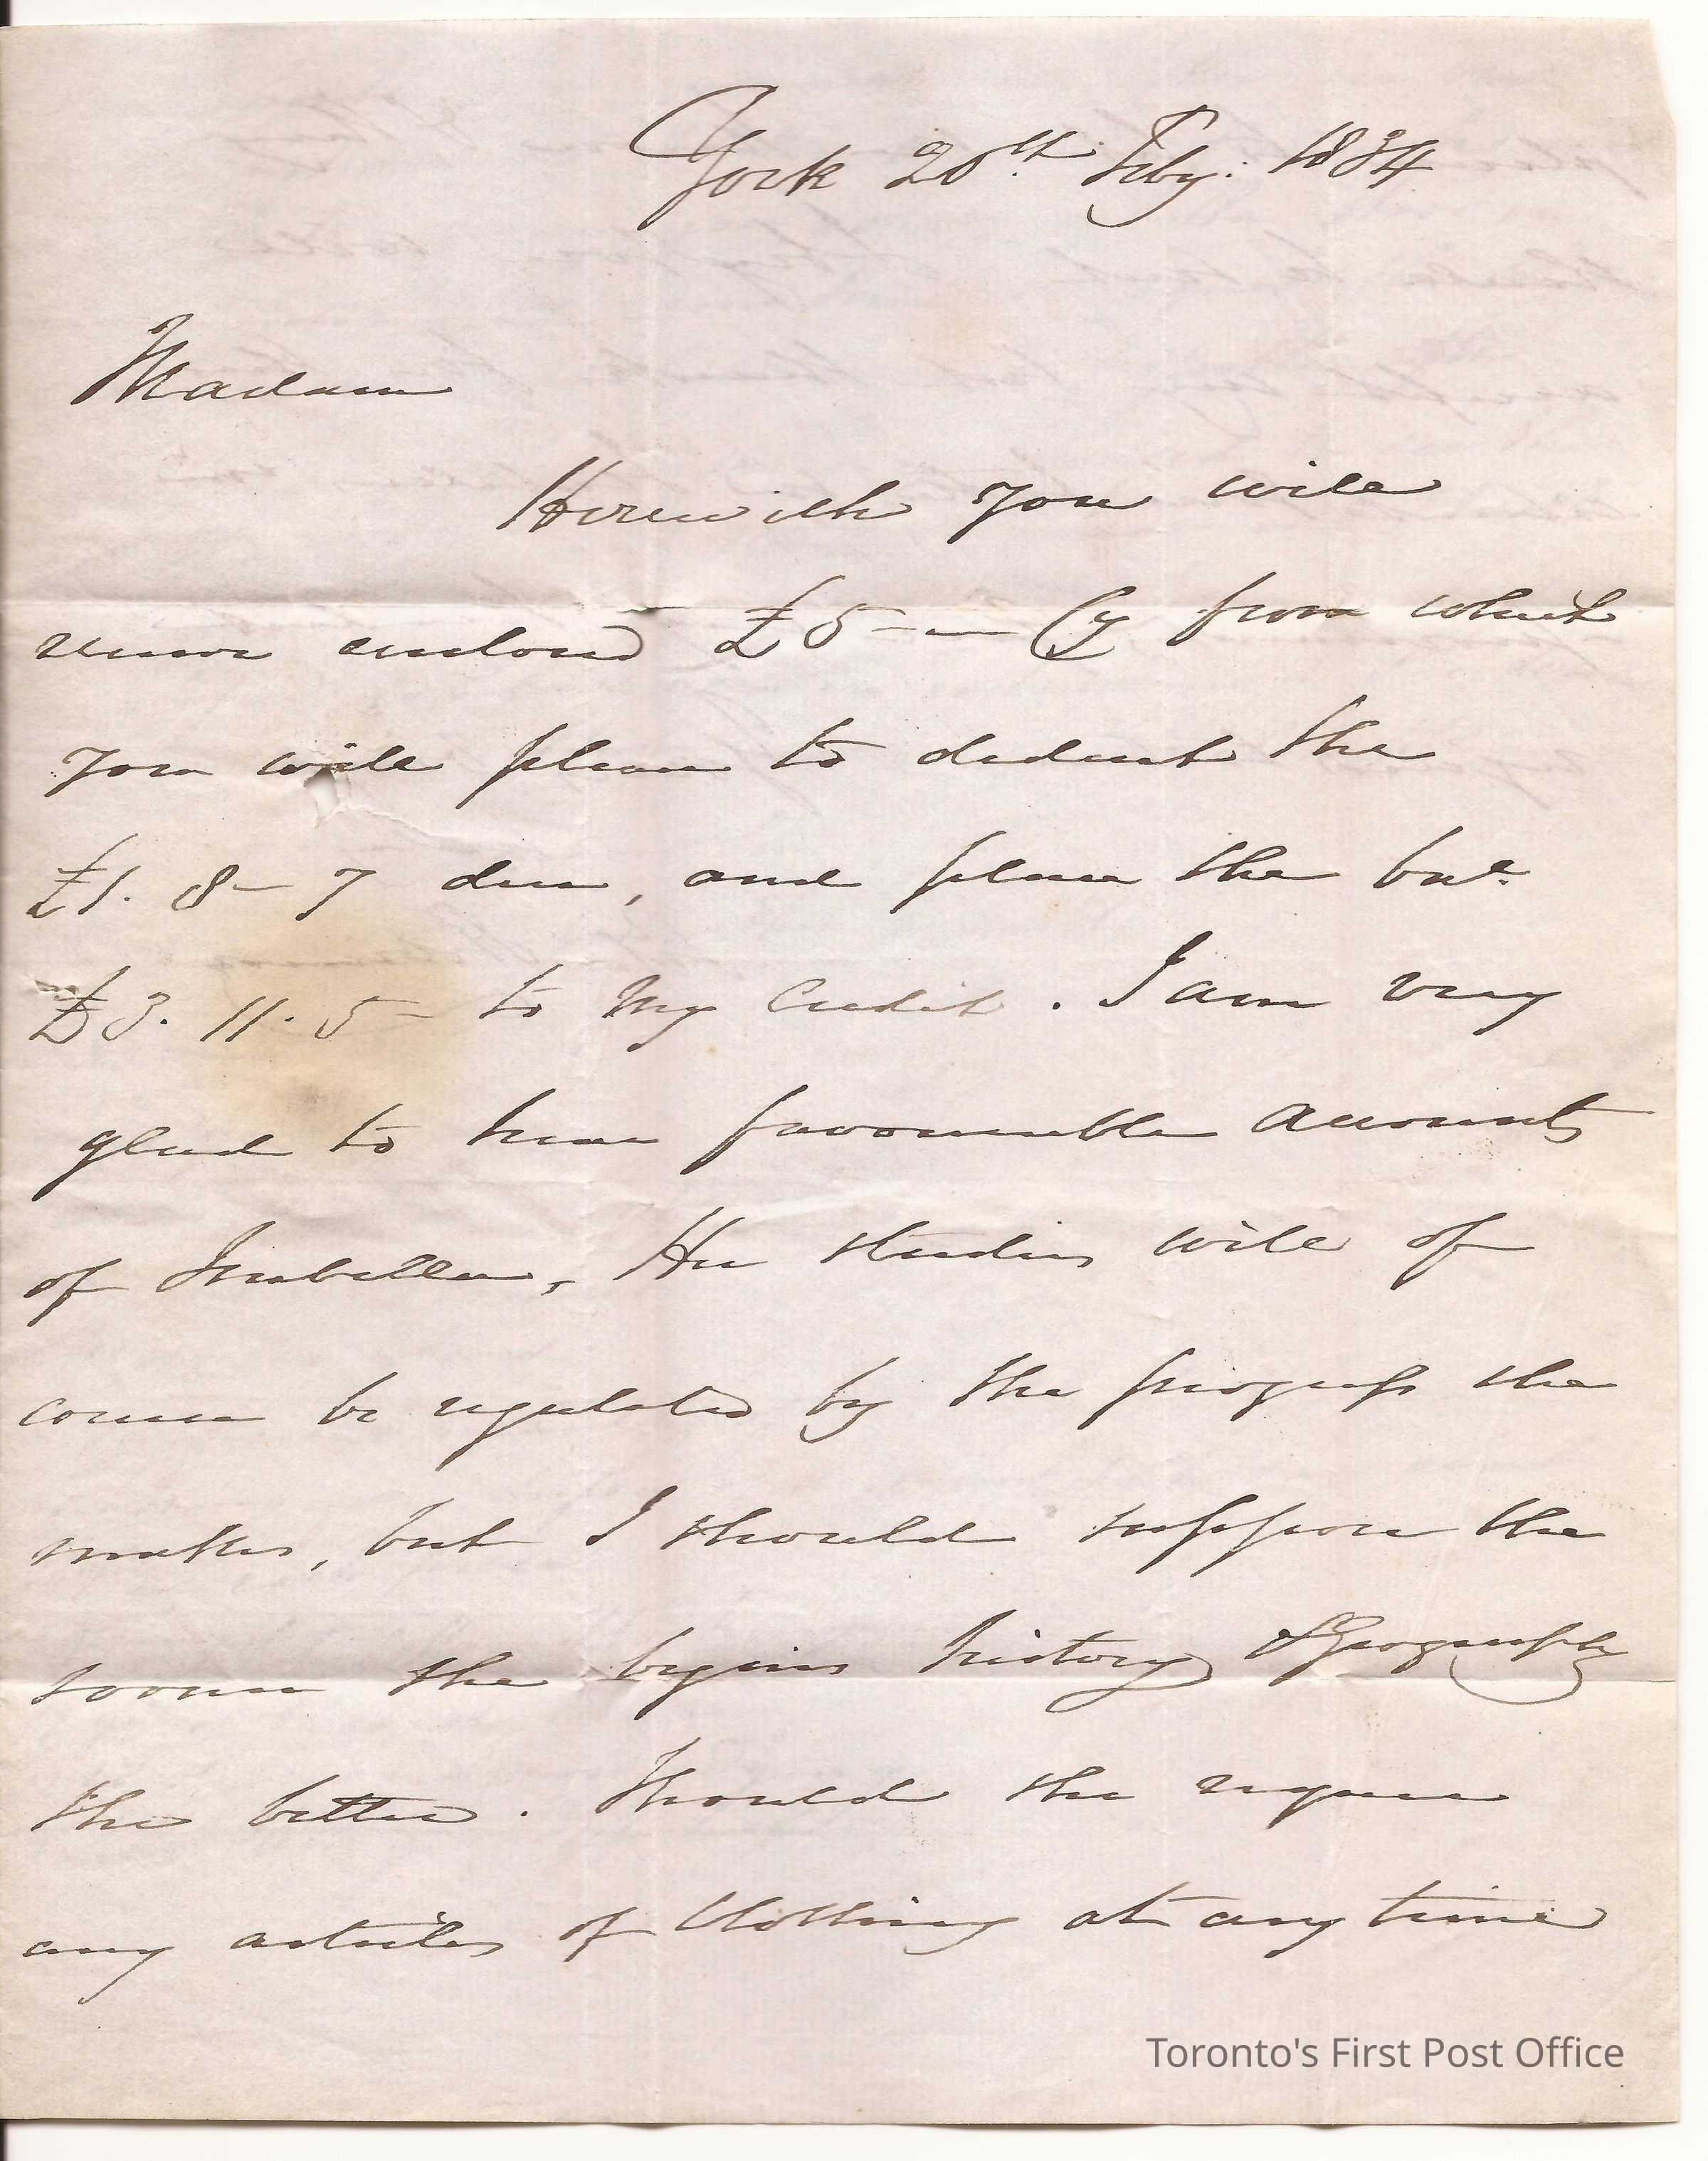 York 20th Feby: 1834
Madam
Herewith you will
receive enclosed £5 - — Cy from which
you will please to deduct the
£1. 8 - 7 due, and place the bale.
£3. 11. 5 - to my Credit. I am very
glad to hear favourable accounts
of Isabella, Her studies will of
course be regulated by the progress she
makes, but I should suppose the
sooner she begins history & Geography
the better. Should she require
any articles of Clothing at any time
Toronto's First Post Office